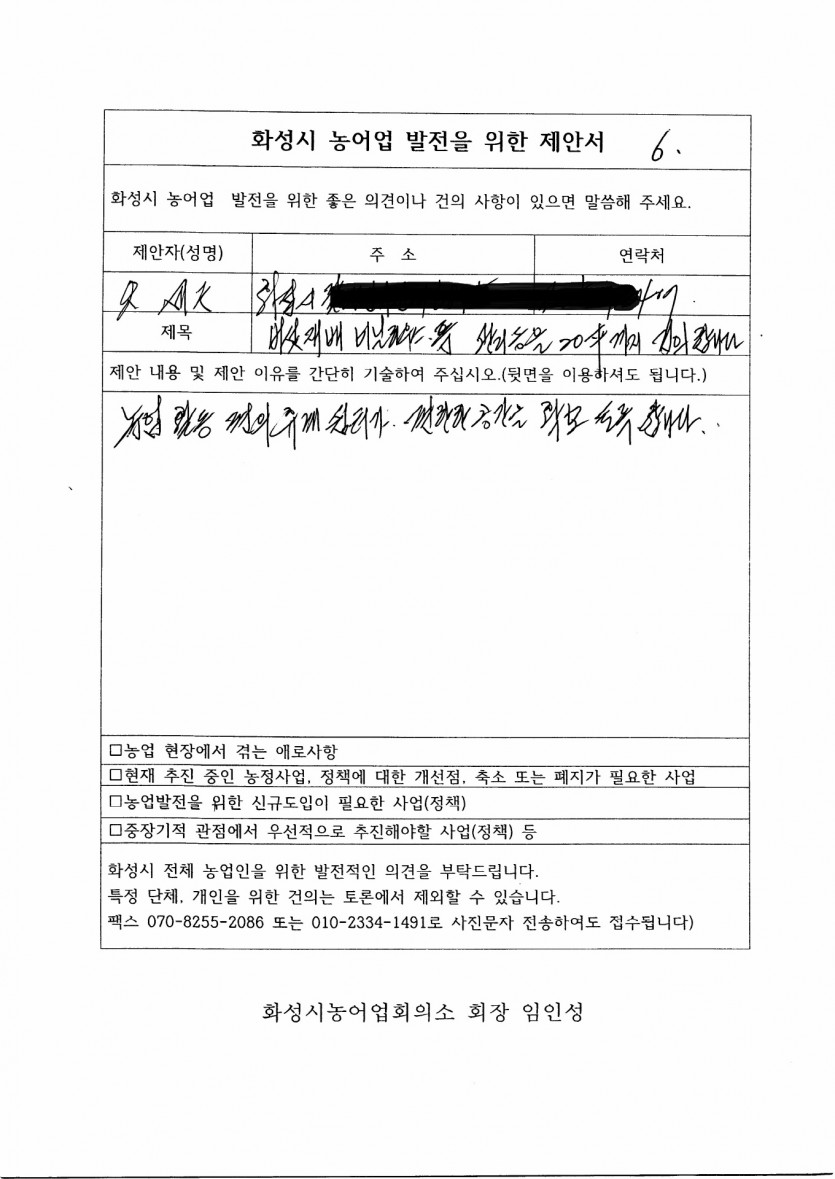 화성시 농어업 발전을 위한 제안서 6.
화성시 농어업 발전을 위한 좋은 의견이나 건의 사항이 있으면 말씀해 주세요.
제안자(성명) 주 소 연락처
오 세 화성시
제목 버섯재배 비닐하우스 및 20수 까지 건의 합니다
제안 내용 및 제안 이유를 간단히 기술하여 주십시오.(뒷면을 이용하셔도 됩니다.)
농업 활동 편의 휴게 쉼터가 편안한 공간을 확보 합니다.
□농업 현장에서 겪는 애로사항
□현재 추진 중인 농정사업, 정책에 대한 개선점, 축소 또는 폐지가 필요한 사업
□농업발전을 위한 신규도입이 필요한 사업(정책)
□중장기적 관점에서 우선적으로 추진해야할 사업(정책) 등
화성시 전체 농업인을 위한 발전적인 의견을 부탁드립니다.
특정 단체, 개인을 위한 건의는 토론에서 제외할 수 있습니다.
팩스 070-8255-2086 또는 010-2334-1491로 사진문자 전송하여도 접수됩니다)
화성시농어업회의소 회장 임인성